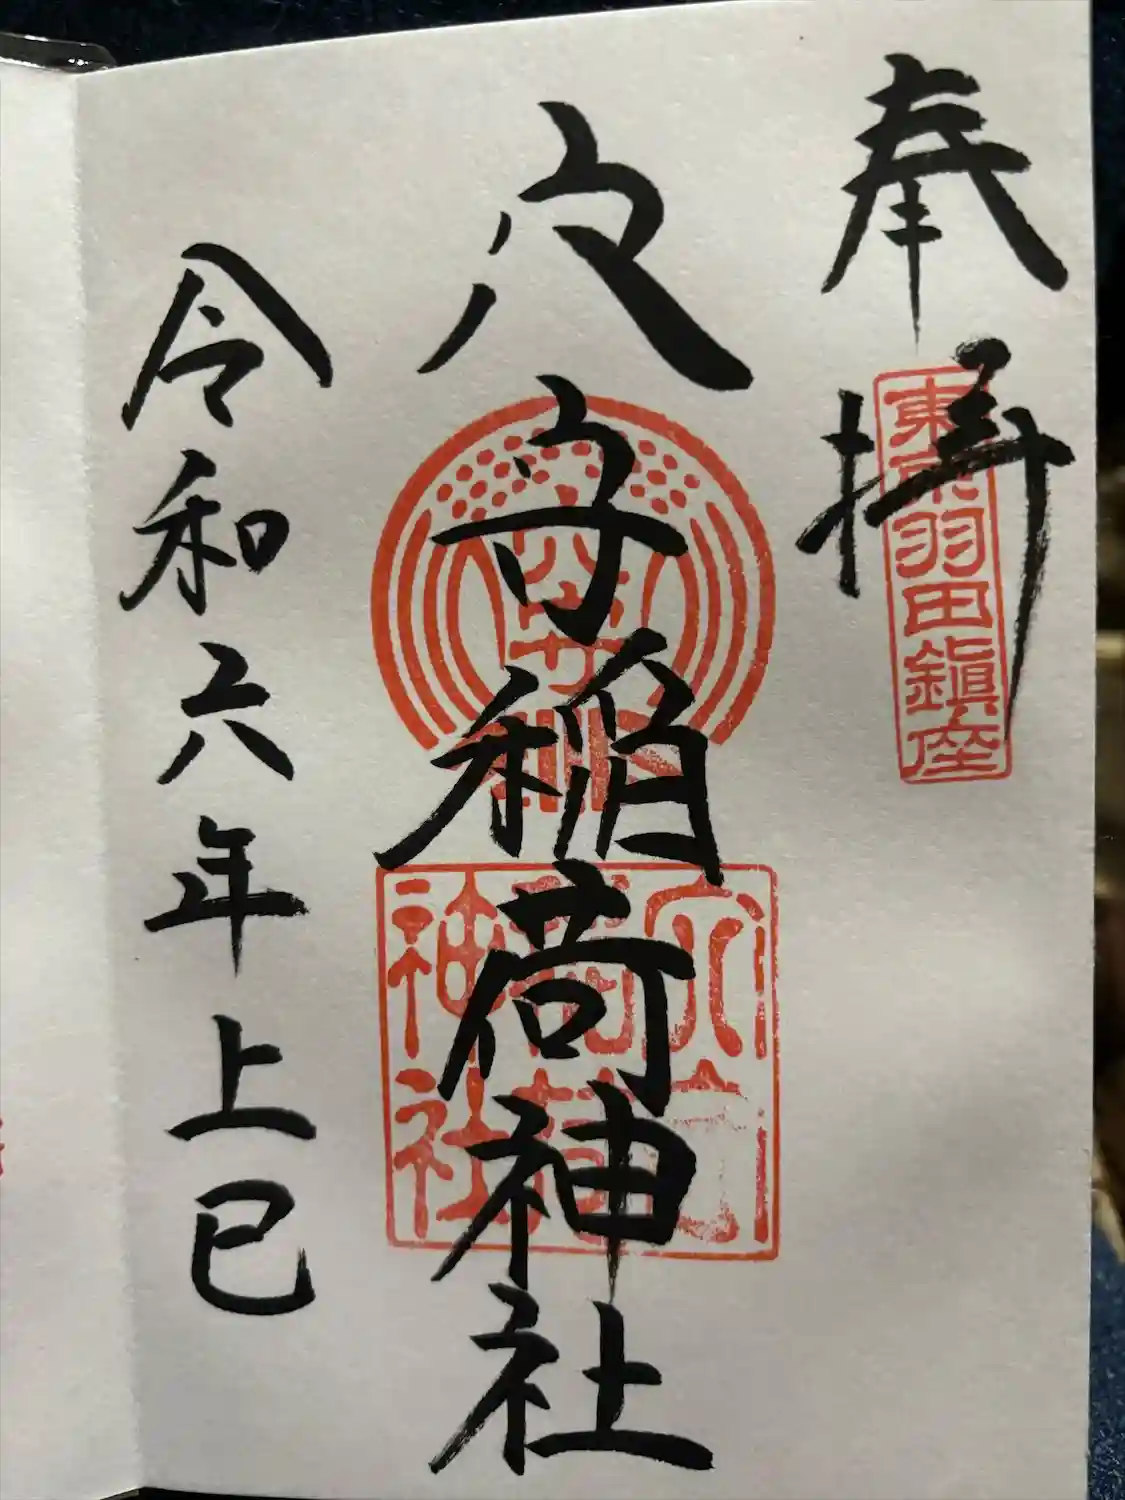 奉拝
東京羽田鎮座
穴守稲荷神社
穴守
稲荷
神社
令和六年上巳